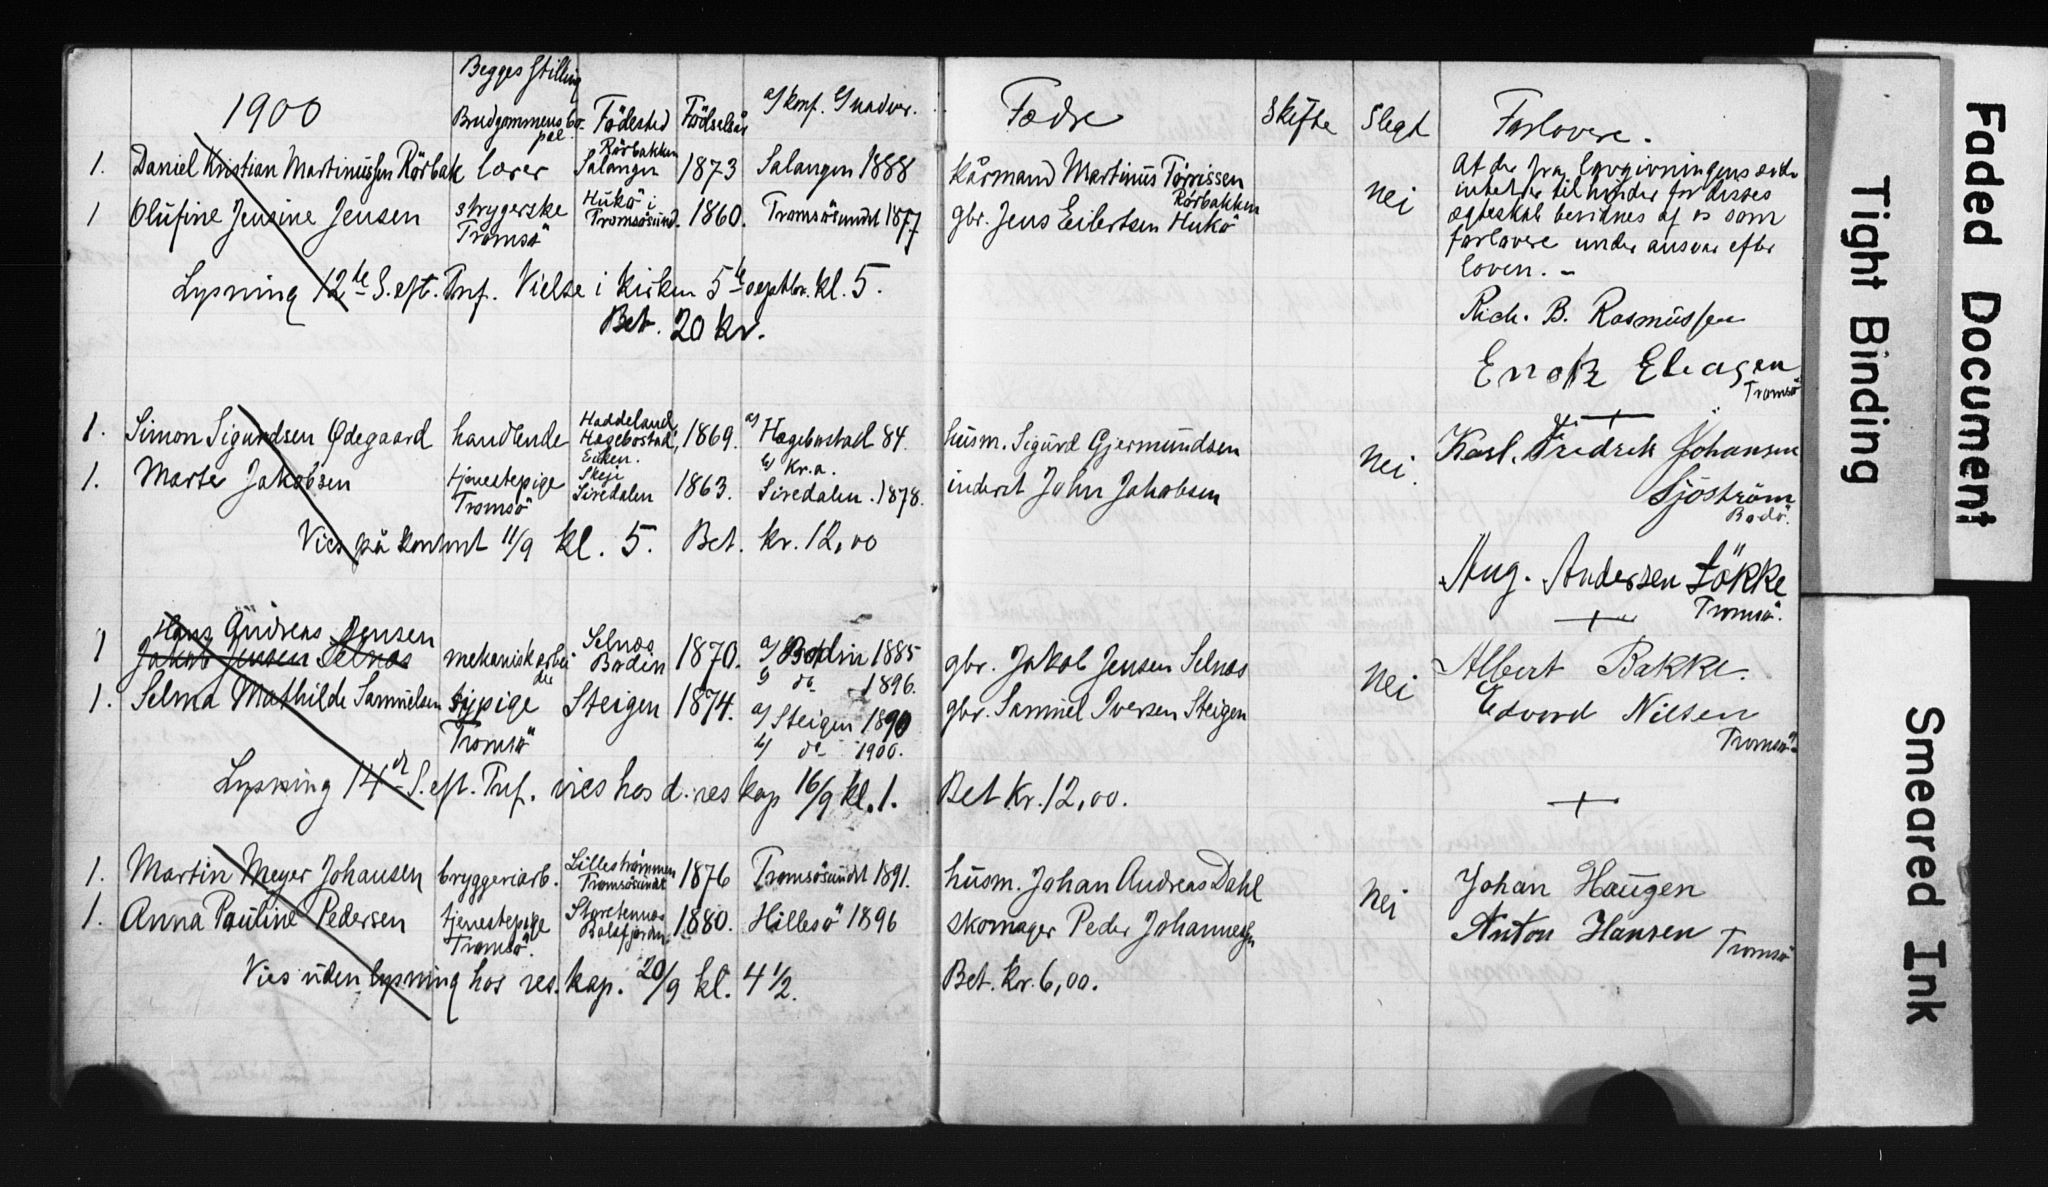 1900
Begges Stilling
Brudgommens bo-
pæl.
Födested
Födselsår
a) konf. b) nadver.
Fædre
Skifte
Slegt
Forlovere.
1. Daniel Kristian Martinussen Rörbak lærer Rörbakken Salangen 1873 Salangen 1888 kårmand Martinus Torrissen Rörbakken
1 Olufine Jensine Jensen strygerske Tromsö Hukö i Tromsösund. 1860. Tromsösundet 1877 gbr. Jens Eilertsen Hukö nei
At der fra lovgivningens side
intet er til hinder for disses
ægteskab bevidnes af os som
forlovere under ansvar efter
loven. –
Lysning 12te S. eft. Trf. Vielse i kirken 5te septbr. kl. 5.
Bet. 20 kr.
Rich. B. Rasmussen
Enok Eliasen
Tromsö
1. Simon Sigurdsen Ødegaard handlende Haddeland, Hægebostad, Eiken. 1869. a) Hægebostad 84. b) kr.a. husm. Sigurd Gjermundsen
1. Marte Jakobsen tjenestepige Tromsö Skeje Siredalen 1863. Siredalen. 1878. inderst John Jakobsen nei.
Karl. Fredrik Johansen
Sjöström
Bodö.
Vies på kontoret 11/9 kl. 5. Bet. kr. 12,00
Aug. Andersen Løkke
Tromsö.
Hans Andreas Jensen
1 Jakob Jensen Selnæs mekanisk arbeider Selnæs Bodin 1870. a) Bodin 1885 b) do 1896. gbr. Jakob Jensen Selnæs
1. Selma Mathilde Samuelsen sypige Tromsö Steigen 1874. a) Steigen 1890 b) do 1900. gbr. Samuel Iversen Steigen nei
Albert Bakke.
Edvard Nilsen
Tromsö
Lysning 14de S. eft. Trf. vies hos d. res kap 16/9 kl. 1. Bet Kr. 12,00.
1. Martin Meyer Johansen bryggeriarb. Lillestrømmen Tromsösundet 1876 Tromsösundet 1891. husm. Johan Andreas Dahl
1. Anna Pauline Pedersen tjenestepige Tromsö. Storstennes Balsfjorden 1880. Hillesö 1896 skomager Peder Johannessen nei
Johan Haugen
Anton Hansen
Tromsö
Vies uden lysning hos res. kap. 20/9 kl. 4 1/2. Bet. kr. 6,00.
Faded Document
Tight Binding
Smeared Ink